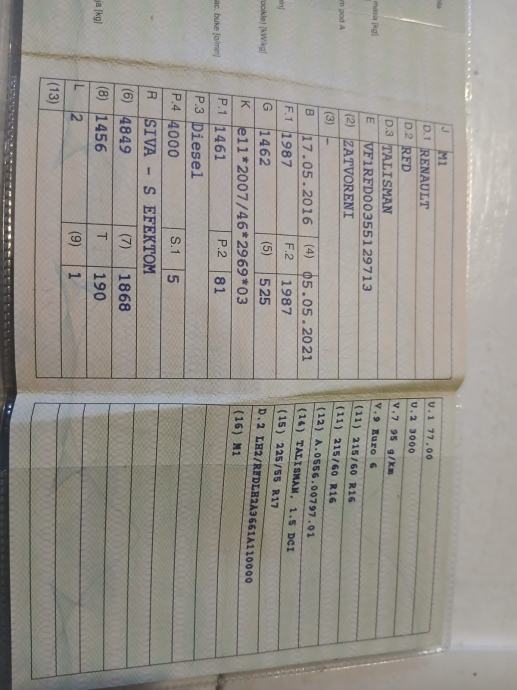 masa [kg]
m pod A
[kW/kg]
ac. buke [o/min]
ja [kg]
J M1
D.1 RENAULT
D.2 RFD
D.3 TALISMAN
E VF1RFD00355129713
(2) ZATVORENI
(3) -
B 17.05.2016 (4) 05.05.2021
F.1 1987 F.2 1987
G 1462 (5) 525
K e11*2007/46*2969*03
P.1 1461 P.2 81
P.3 Diesel
P.4 4000 S.1 5
R SIVA - S EFEKTOM
(6) 4849 (7) 1868
(8) 1456 T 190
L 2 (9) 1
(13)
U.1 77.00
U.2 3000
V.7 95 g/km
V.9 Euro 6
(11) 215/60 R16
(11) 215/60 R16
(12) A.0556.00797.01
(14) TALISMAN, 1.5 DCI
(15) 225/55 R17
D.2 LH2/RFDLH2A3661A110000
(16) M1